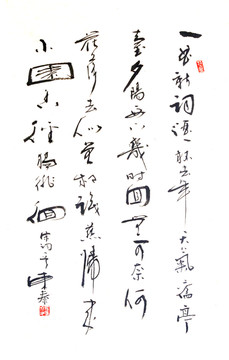 一曲新詞酒一杯去年天氣舊亭
臺夕陽西下幾時回無可奈何
花落去似曾相識燕歸來
小園香徑獨徘徊